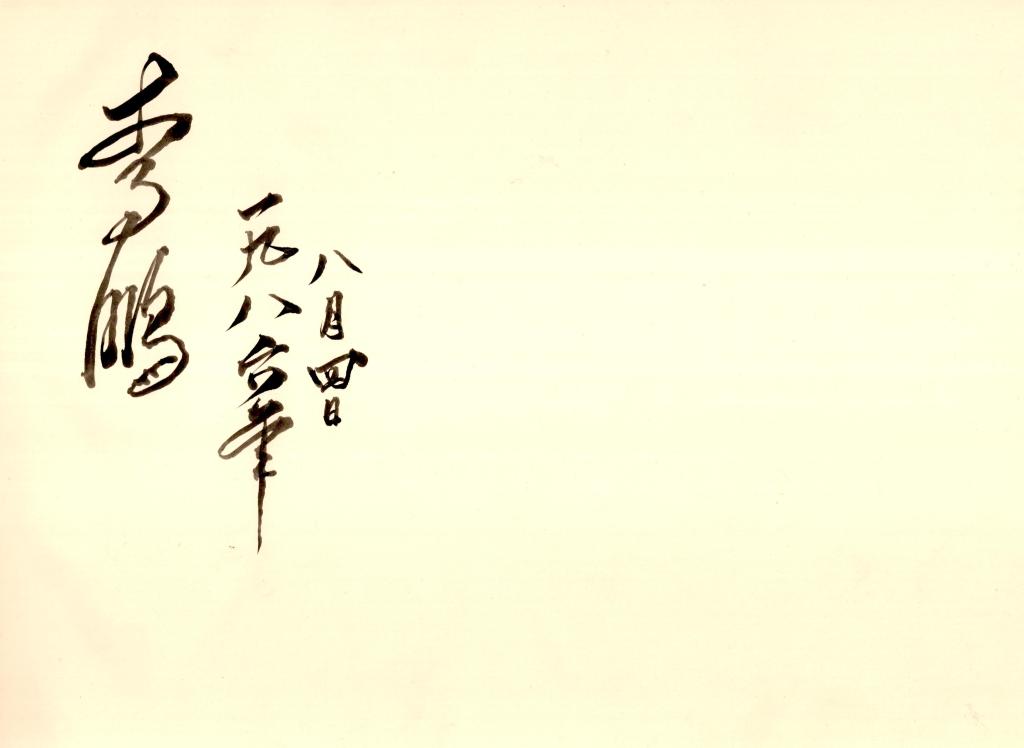 李鹏
一九八六年
八月四日